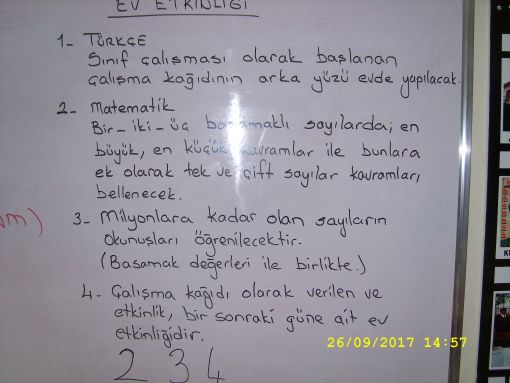 EV ETKİNLİĞİ
1- TÜRKÇE
Sınıf çalışması olarak başlanan
çalışma kağıdının arka yüzü evde yapılacak.
2- Matematik
Bir-iki-üç basamaklı sayılarda; en
büyük, en küçük kavramlar ile bunlara
ek olarak tek ve çift sayılar kavramları
bellenecek.
3- Milyonlara kadar olan sayıların
okunuşları öğrenilecektir.
(Basamak değerleri ile birlikte.)
4- Çalışma kağıdı olarak verilen ve
etkinlik, bir sonraki güne ait ev
etkinliğidir.
26/09/2017 14:57
2 3 4